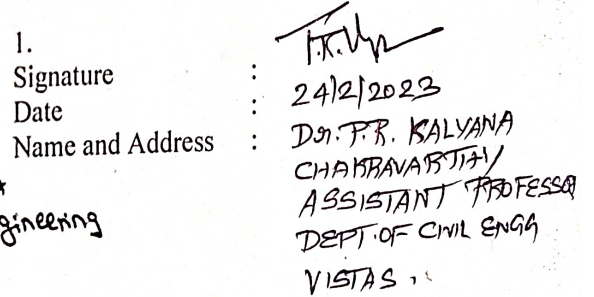 1.
Signature :
Date : 24/2/2023
Name and Address : Dr. P.R. KALYANA
CHAKRAVARTHY
ASSISTANT PROFESSOR
gineering
DEPT. OF CIVIL ENGG
VISTAS.